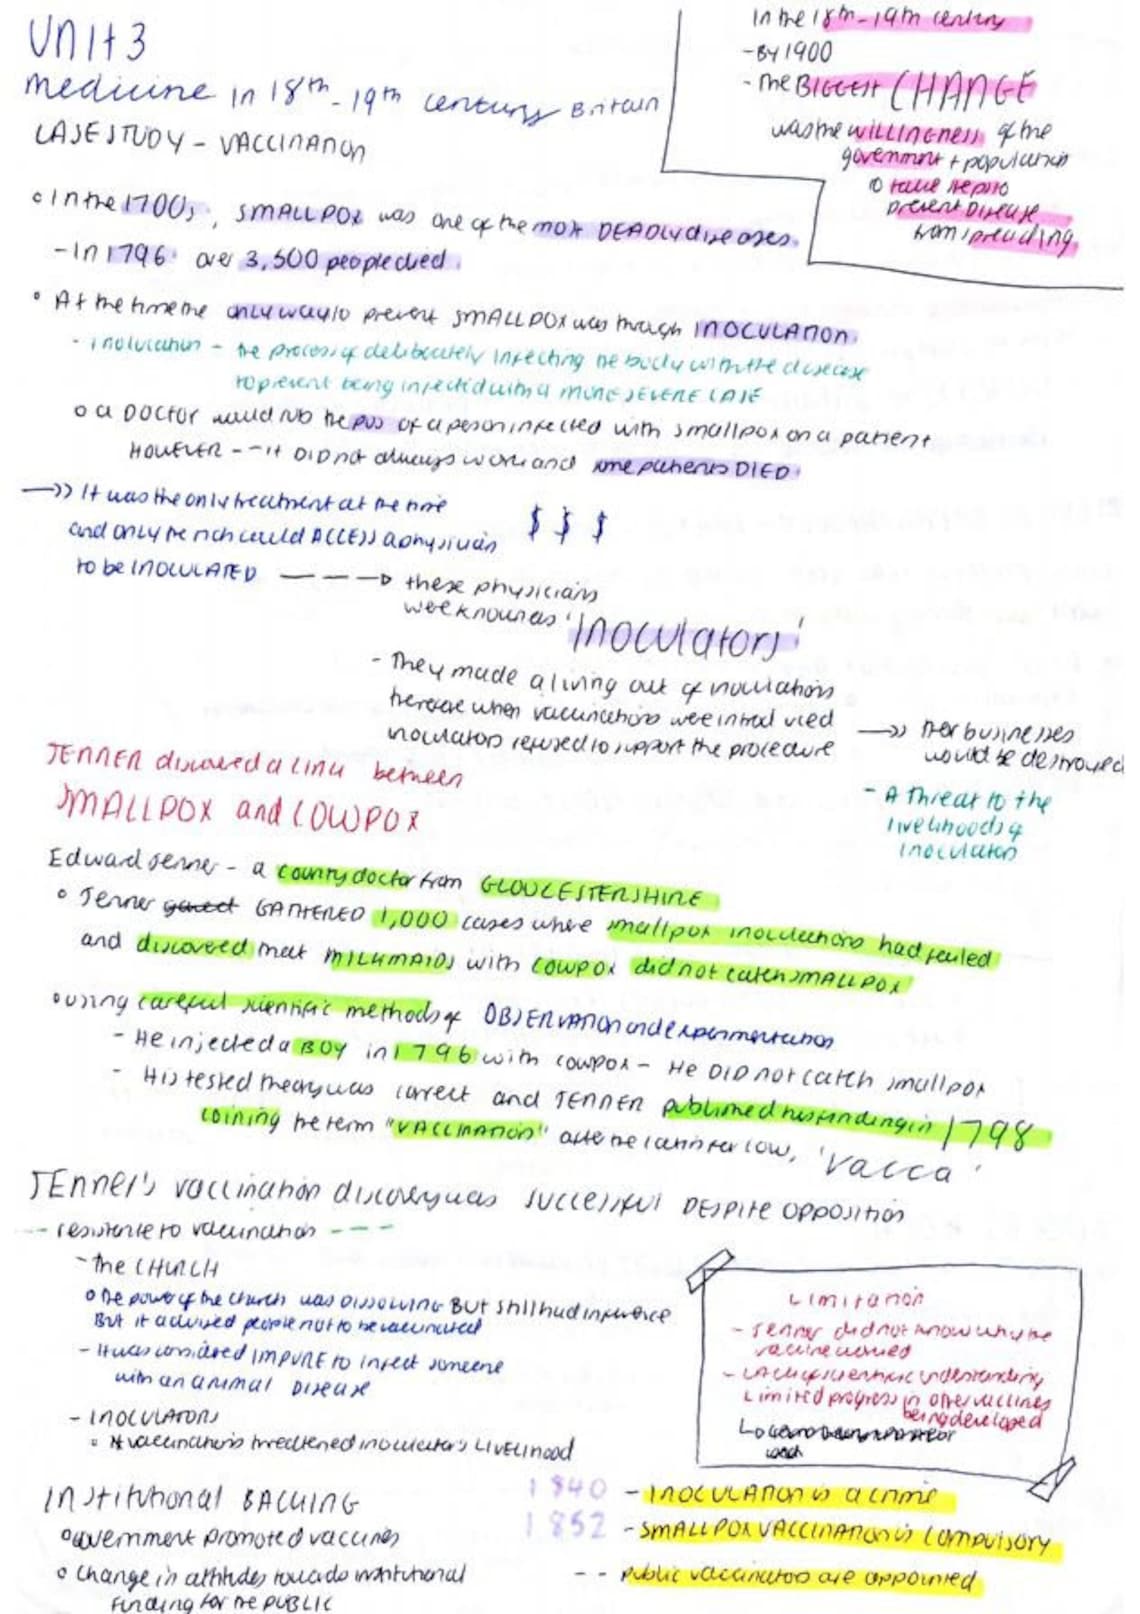 UNIT 3
medicine in 18th - 19th century Britain
CASE STUDY - VACCINATION
In the 18th - 19th century
- BY 1900
- The BIGGEST CHANGE
was the willingness of the
government + population
to take steps to
prevent Disease
from spreading
o In the 1700s, SMALLPOX was one of the most DEADLY diseases.
- In 1796 over 3,500 people died.
o At the time the only way to prevent SMALLPOX was through INOCULATION.
- inoculation - the process of deliberately infecting the body with the disease
to prevent being infected with a MORE SEVERE CASE
o a DOCTOR would rub the pus of a person infected with smallpox on a patient
HOWEVER -- it DID not always work and some patients DIED.
-->> It was the only treatment at the time
and only the rich could ACCESS a physician
to be INOCULATED
$ $ $
--- → these physicians
were known as 'Inoculators'
- They made a living out of inoculations
therefore when vaccinations were introduced
inoculators refused to support the procedure
-->> their businesses
would be destroyed
- A threat to the
livelihoods of
inoculators
JENNER discovered a link between
SMALLPOX and COWPOX
Edward Jenner - a county doctor from GLOUCESTERSHIRE
o Jenner GATHERED 1,000 cases where smallpox inoculations had failed
and discovered that MILKMAIDS with COWPOX did not catch SMALLPOX
o using careful scientific methods of OBSERVATION and experimentation
- He injected a BOY in 1796 with cowpox - He DID not catch smallpox
- His tested theory was correct and JENNER published his findings in 1798
coining the term "VACCINATION" after the latin for cow, 'vacca'
JENNER's vaccination discovery was SUCCESSFUL DESPITE OPPOSITION
-- resistence to vaccination ---
- The CHURCH
o the power of the church was DISSOLVING BUT still had influence
But it advised people not to be vaccinated
- It was considered IMPURE to infect someone
with an animal DISEASE
- INOCULATORS
o vaccinations threatened inoculators LIVELIHOOD
Limitation
- Jenner did not know why the
vaccine worked
- Lack of scientific understanding
Limited progress in other vaccines
being developed
INSTITUTIONAL BACKING
o Government promoted vaccines
o Change in attitudes towards institutional
Funding for the PUBLIC
1840 - INOCULATION is a crime
1852 - SMALLPOX VACCINATION is COMPULSORY
-- public vaccinators are appointed